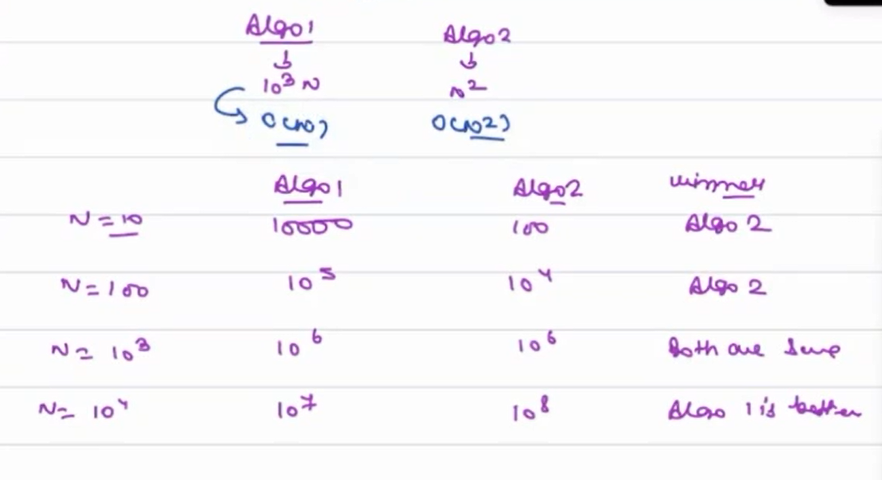 Algo1 Algo2
↓ ↓
10³ N N²
O(N) O(N2)
Algo1 Algo2 winner
N=10 10000 100 Algo 2
N=100 10⁵ 10⁴ Algo 2
N= 10³ 10⁶ 10⁶ Both are same
N= 10⁴ 10⁷ 10⁸ Algo 1 is better